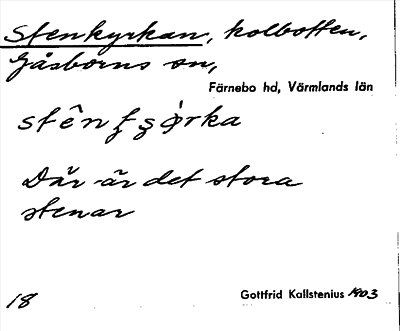 Stenkyrkan, kolbotten,
Gåsborns sn,
Färnebo hd, Värmlands län
Där är det stora
stenar
18
Gottfrid Kallstenius 1903